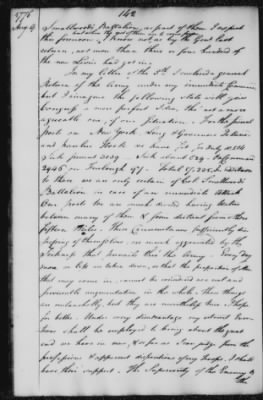 1776 142
Aug. 9 Smallwoods Battalion, as part of them I expect
this forenoon,
return, not more than three or four hundred of
the new Levies had got in.
In my letter of the 5th I enclosed a general
Return of the Army under my immediate Command
but I imagine the following state will give
Congress a more perfect Idea, tho' not a more
agreeable one, of our situation. For the several
posts on New York, Long & Governors Islands
and Paulus Hook we have fit for duty 10,514
Sick present 3039. Sick absent 629. On Command
2946 on Furlough 97. Total 17,225. in addition
to these we are only certain of Col. Smallwoods
Battalion in case of an immediate attack
Our posts too are much divided having waters
between many of them & some distant from others
Fifteen Miles. These circumstances sufficiently dis-
tressing of themselves, are much aggravated by the
Sickness that prevails thro' the Army. Every day
more or less are taken down, so that the proportion of Men
that may come in, cannot be considered as real and
serviceable augmentation on the whole. These things
are melancholy, but they are nevertheless true. I hope
for better. Under every disadvantage my utmost exer-
tions shall be employed to bring about the great
end we have in view, & so far as I can judge from the
professions & apparent dispositions of my Troops, I shall
have their support. The Superiority of the Enemy &
the